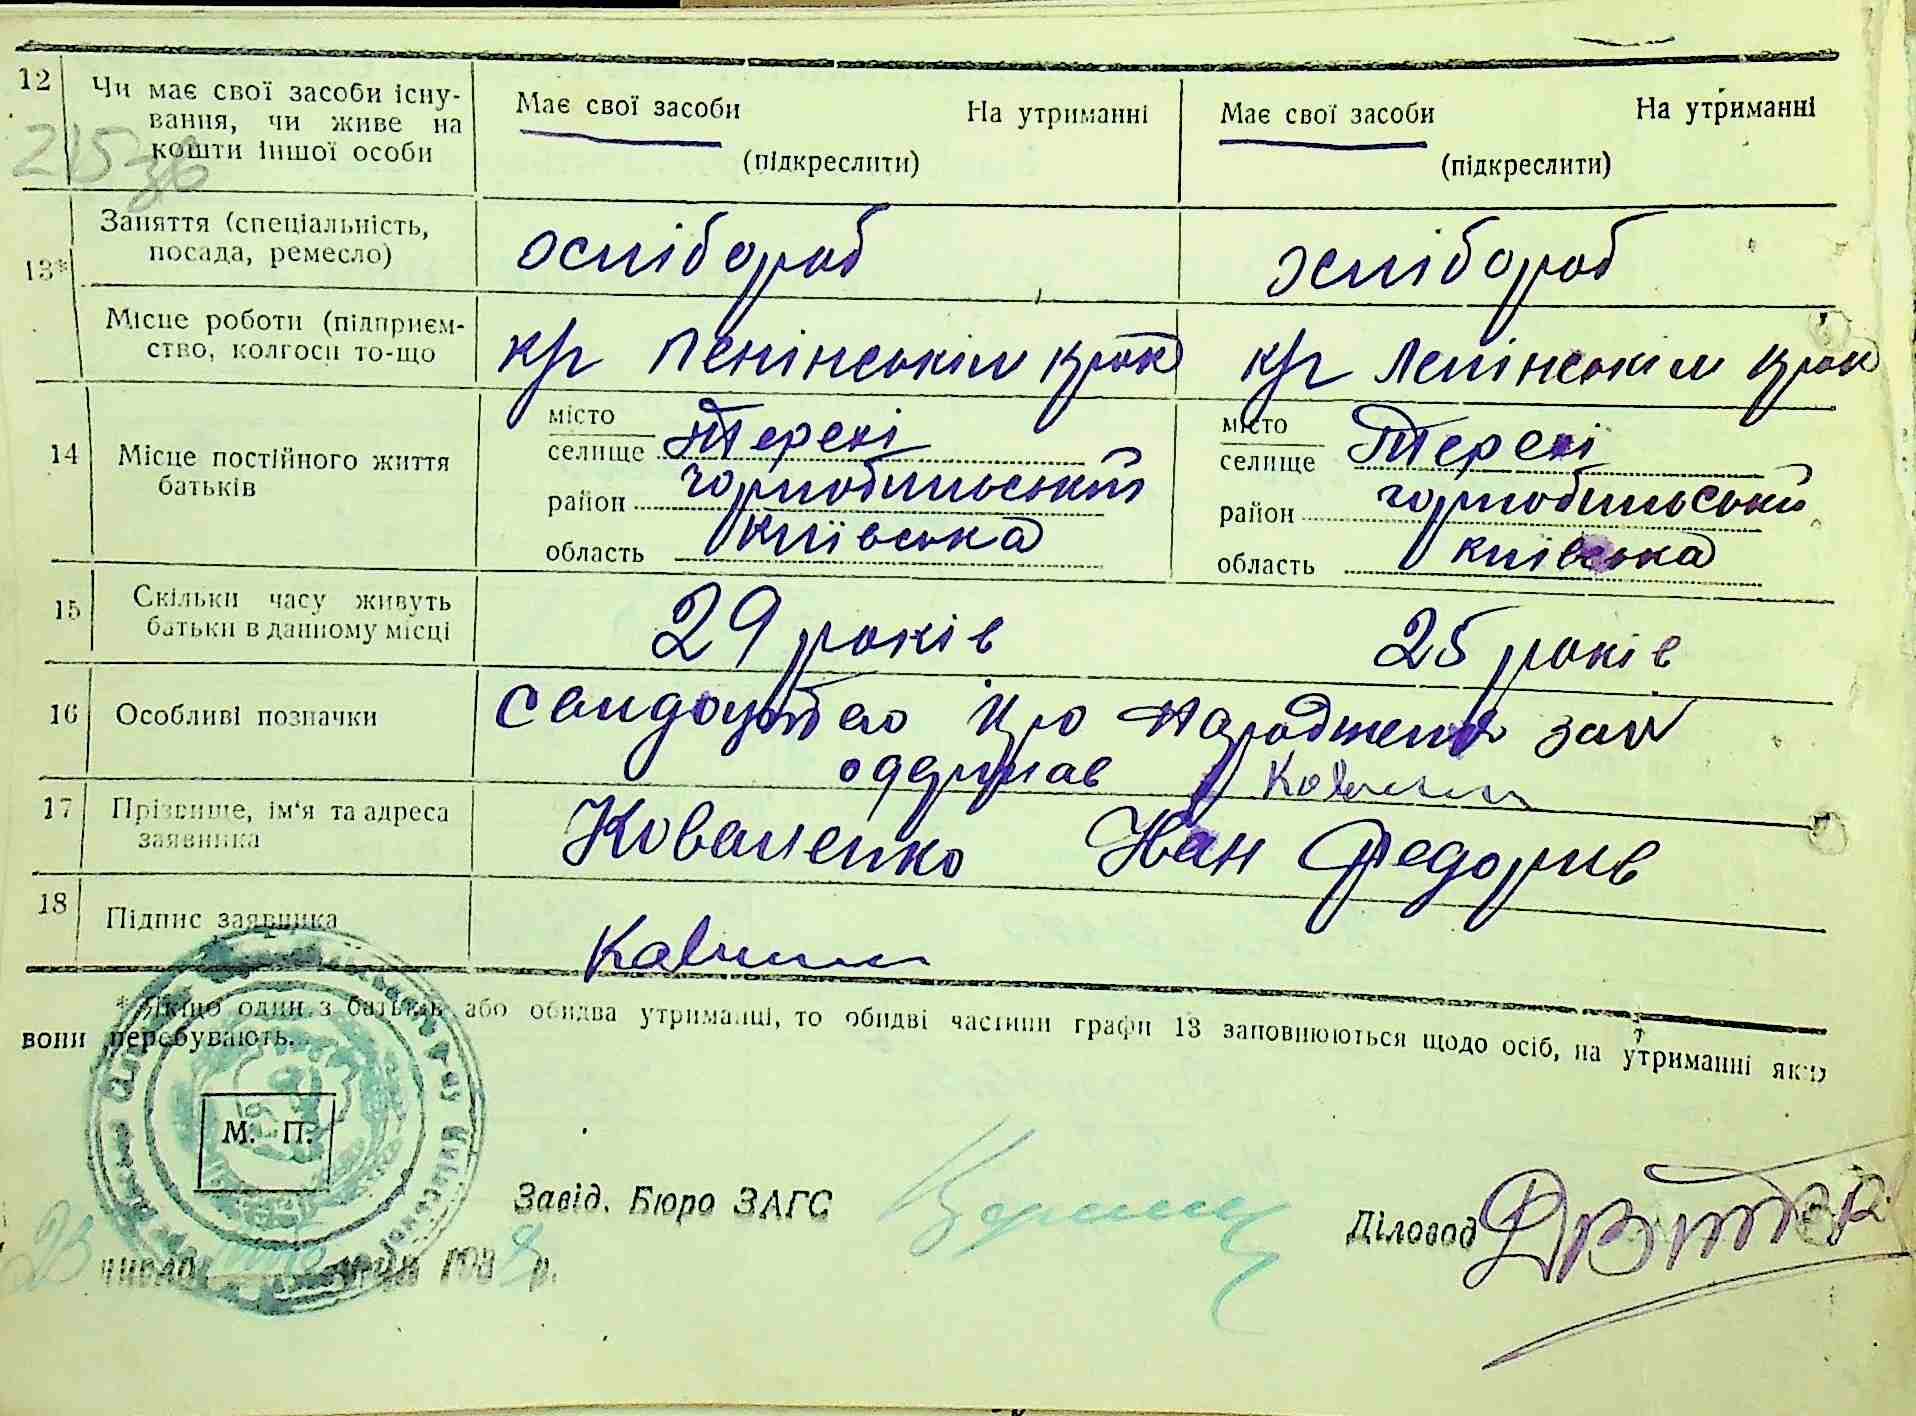 12
Чи має свої засоби існу-
вання, чи живе на
кошти іншої особи
Має свої засоби На утриманні
(підкреслити)
Має свої засоби На утриманні
(підкреслити)
215
зв
13*
Заняття (спеціальність,
посада, ремесло)
осмібороб
осмібороб
Місце роботи (підприєм-
ство, колгосп то-що
к/г Ленінськім крок
к/г Ленінськім крок
14
Місце постійного життя
батьків
місто
селище Терехі
район чорнобильський
область київська
місто
селище Терехі
район чорнобильський
область київська
15
Скільки часу живуть
батьки в данному місці
29 років
25 років
16
Особливі позначки
свидоцтво про народження за №
оддержав
17
Прізвище, ім'я та адреса
заявника
Коваленко Іван Федорив
18
Підпис заявника
* Якщо один з батьків або обидва утриманці, то обидві частини графи 13 заповнюються щодо осіб, на утриманні яких
вони перебувають.
М. П.
Завід. Бюро ЗАГС
Діловод
23 число 193 р.